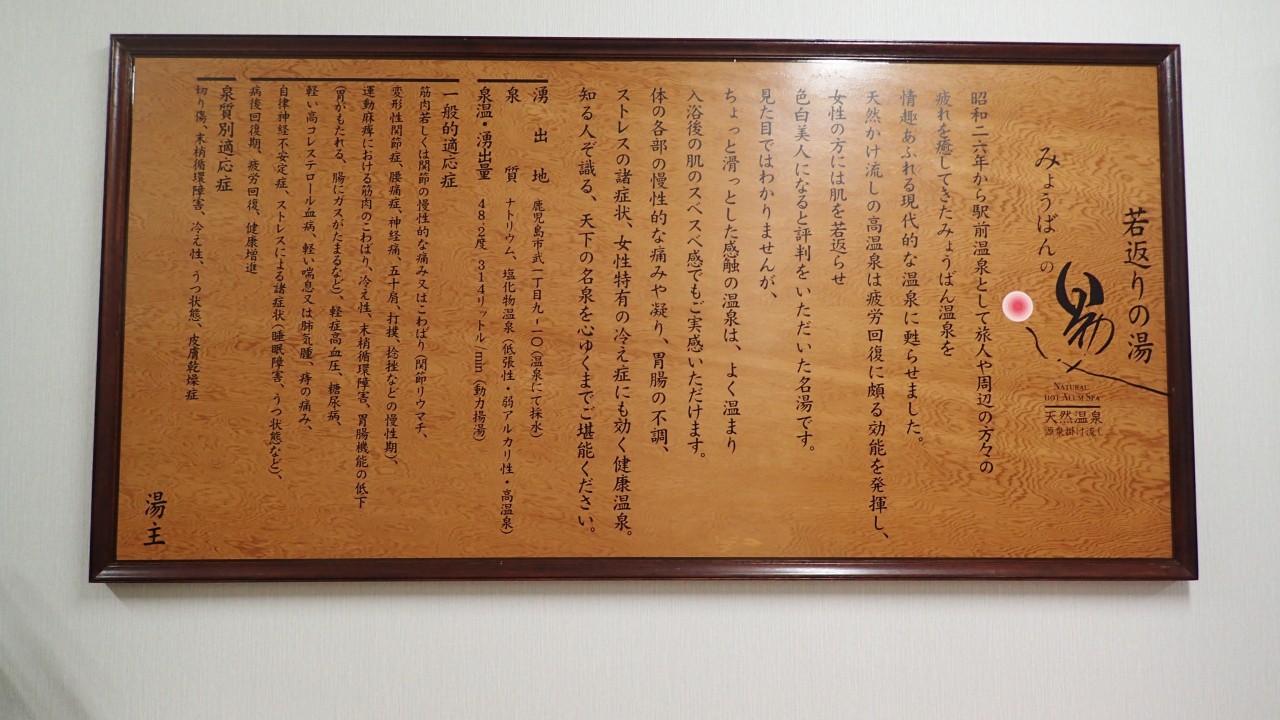 若返りの湯
みょうばんの
湯
NATURAL
HOT ALUM SPA
天然温泉
源泉掛け流し
昭和二六年から駅前温泉として旅人や周辺の方々の
疲れを癒してきたみょうばん温泉を
情趣あふれる現代的な温泉に甦らせました。
天然かけ流しの高温泉は疲労回復に頗る効能を発揮し、
女性の方には肌を若返らせ
色白美人になると評判をいただいた名湯です。
見た目ではわかりませんが、
ちょっと滑っとした感触の温泉は、よく温まり
入浴後の肌のスベスベ感でもご実感いただけます。
体の各部の慢性的な痛みや凝り、胃腸の不調、
ストレスの諸症状、女性特有の冷え症にも効く健康温泉。
知る人ぞ識る、天下の名泉を心ゆくまでご堪能ください。
湧出地 鹿児島市武一丁目九-一〇(温泉にて採水)
泉質 ナトリウム、塩化物温泉(低張性・弱アルカリ性・高温泉)
泉温・湧出量 48.2度 314リットル/min(動力揚湯)
一般的適応症
筋肉若しくは関節の慢性的な痛み又はこわばり(関節リウマチ、
変形性関節症、腰痛症、神経痛、五十肩、打撲、捻挫などの慢性期)、
運動麻痺における筋肉のこわばり、冷え性、末梢循環障害、胃腸機能の低下
(胃がもたれる、腸にガスがたまるなど)、軽症高血圧、糖尿病、
軽い高コレステロール血病、軽い喘息又は肺気腫、痔の痛み、
自律神経不安定症、ストレスによる諸症状(睡眠障害、うつ状態など)、
病後回復期、疲労回復、健康増進
泉質別適応症
切り傷、末梢循環障害、冷え性、うつ状態、皮膚乾燥症
湯主